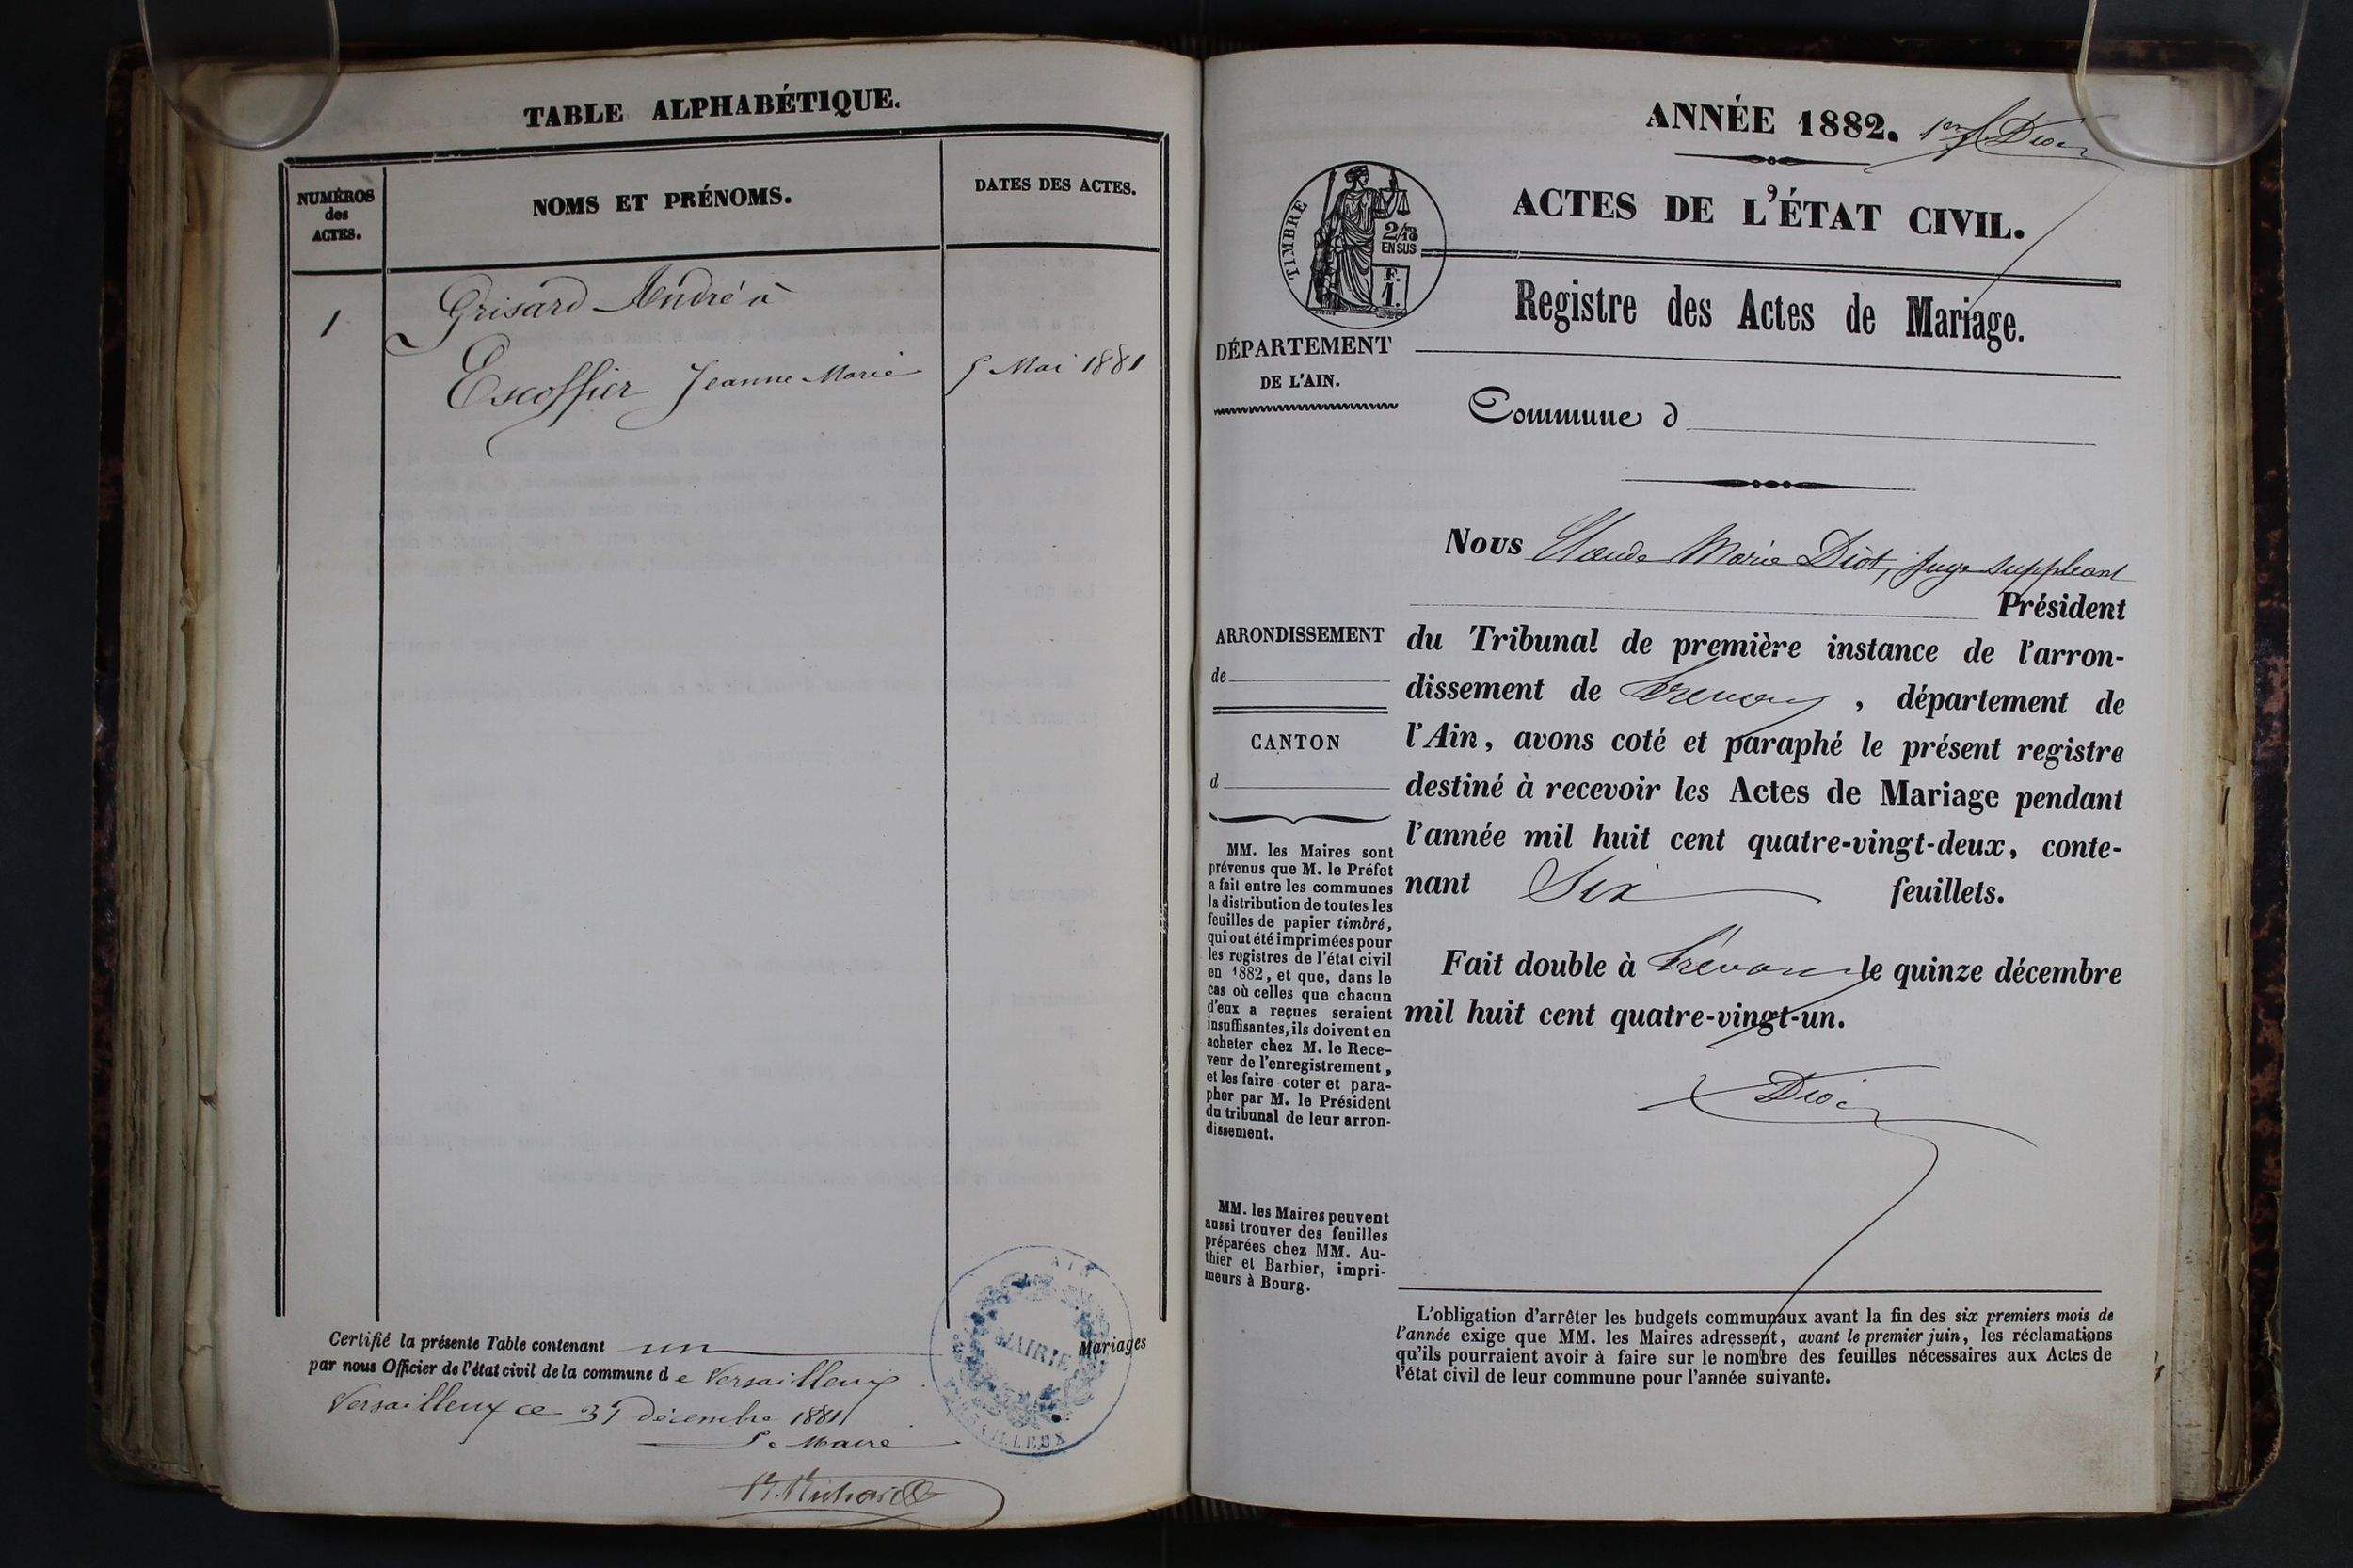 TABLE ALPHABÉTIQUE.
NUMÉROS
des
ACTES.
NOMS ET PRÉNOMS.
DATES DES ACTES.
1
Grisard André à
Escoffier Jeanne Marie
5 Mai 1881
Certifié la présente Table contenant un Mariages
par nous Officier de l'état civil de la commune de Versailleux
Versailleux ce 31 décembre 1881
Le Maire
AIN
MAIRIE
VERSAILLEUX
ANNÉE 1882.
1er f Diot
ACTES DE L'ÉTAT CIVIL.
TIMBRE
2/10
EN SUS
F.
1.
Registre des Actes de Mariage.
DÉPARTEMENT
DE L'AIN.
Commune d
Nous Claude Marie Diot, juge suppléant
Président
ARRONDISSEMENT
de
CANTON
d
du Tribunal de première instance de l'arron-
dissement de Trévoux, département de
l'Ain, avons coté et paraphé le présent registre
destiné à recevoir les Actes de Mariage pendant
l'année mil huit cent quatre-vingt-deux, conte-
nant Six feuillets.
Fait double à Trévoux le quinze décembre
mil huit cent quatre-vingt-un.
Diot
MM. les Maires sont
prévenus que M. le Préfet
a fait entre les communes
la distribution de toutes les
feuilles de papier timbré,
qui ont été imprimées pour
les registres de l'état civil
en 1882, et que, dans le
cas où celles que chacun
d'eux a reçues seraient
insuffisantes, ils doivent en
acheter chez M. le Rece-
veur de l'enregistrement,
et les faire coter et para-
pher par M. le Président
du tribunal de leur arron-
dissement.
MM. les Maires peuvent
aussi trouver des feuilles
préparées chez MM. Au-
thier et Barbier, impri-
meurs à Bourg.
L'obligation d'arrêter les budgets communaux avant la fin des six premiers mois de
l'année exige que MM. les Maires adressent, avant le premier juin, les réclamations
qu'ils pourraient avoir à faire sur le nombre des feuilles nécessaires aux Actes de
l'état civil de leur commune pour l'année suivante.